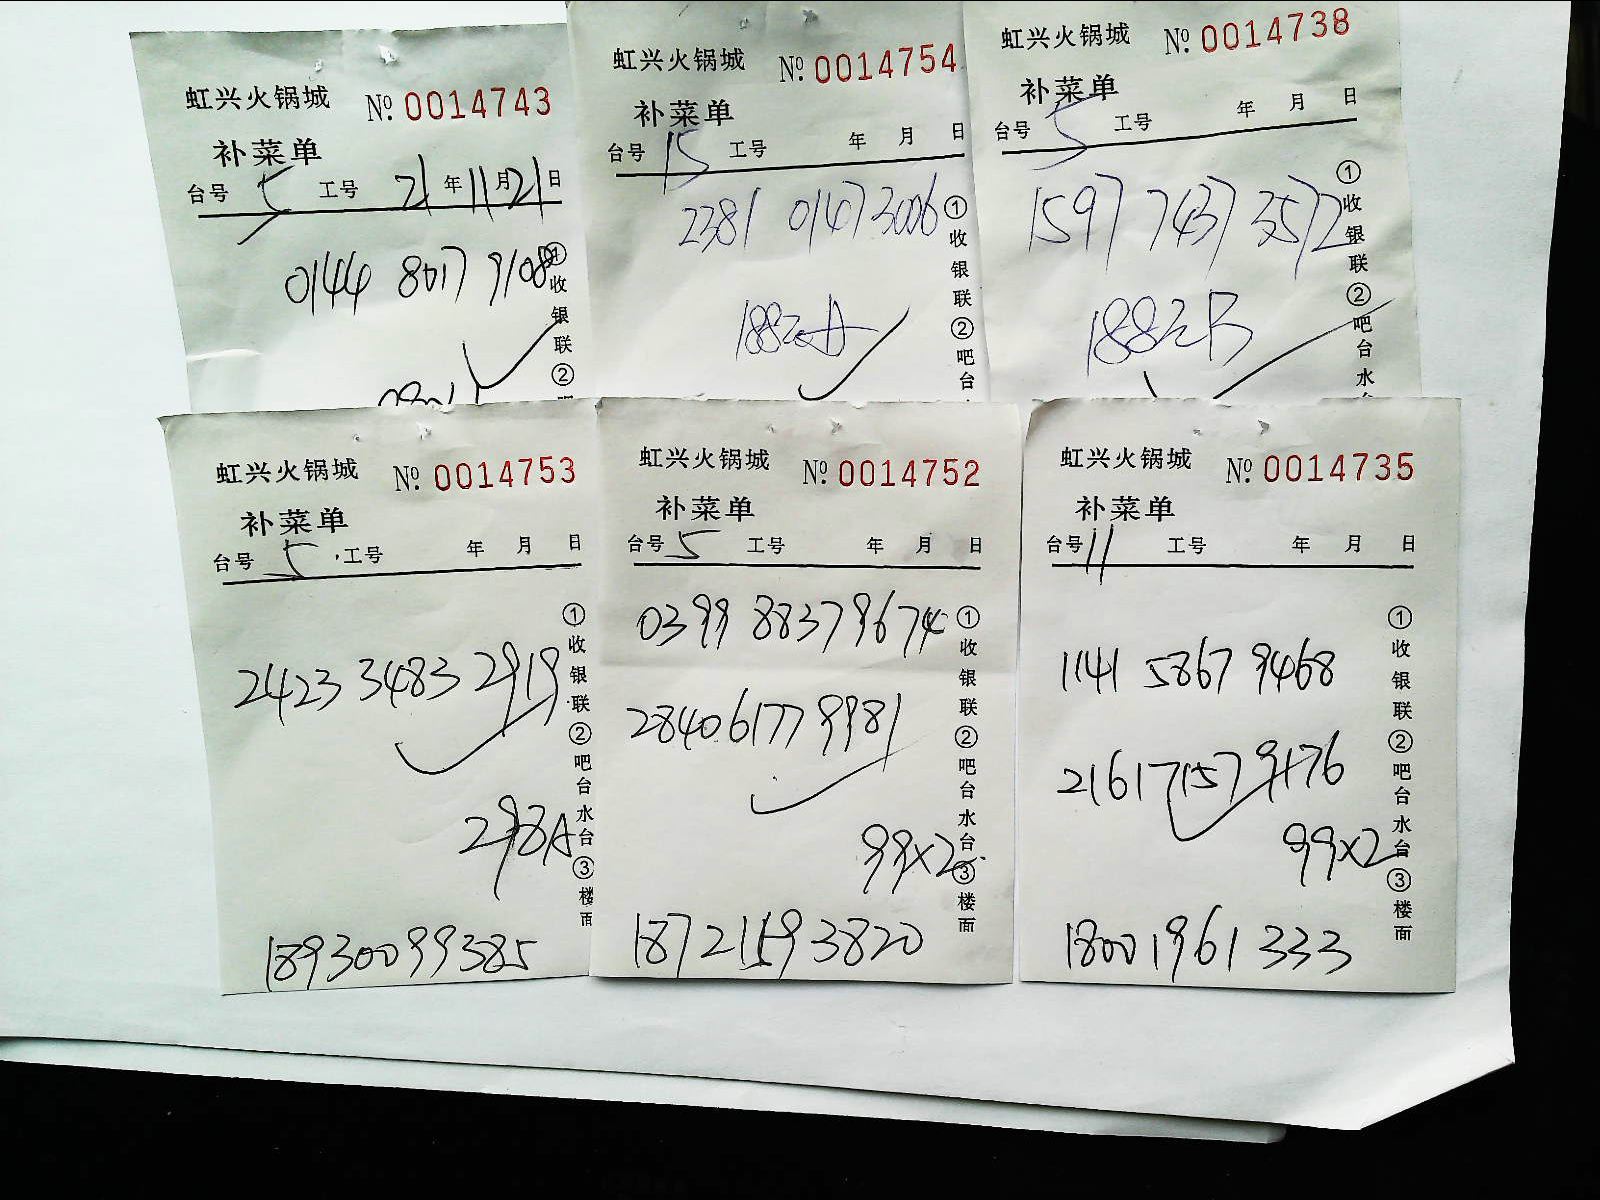 虹兴火锅城 №. 0014743
补菜单
台号 5 工号 21 年 11 月 21 日
0144 8017 9108
①收银联②
虹兴火锅城 №. 0014754
补菜单
台号 15 工号 年 月 日
2381 0147 3006
188元A
①收银联②吧台
虹兴火锅城 №. 0014738
补菜单
台号 5 工号 年 月 日
1597 7437 3572
188元B
①收银联②吧台水
虹兴火锅城 №. 0014753
补菜单
台号 5 工号 年 月 日
2423 3483 2919
298A
18930099385
①收银联②吧台水台③楼面
虹兴火锅城 №. 0014752
补菜单
台号 5 工号 年 月 日
0399 8837 9674
2840 6177 9981
99x2
18721593820
①收银联②吧台水台③楼面
虹兴火锅城 №. 0014735
补菜单
台号 11 工号 年 月 日
1141 5867 9468
2161 7157 9176
99x2
18001961333
①收银联②吧台水台③楼面